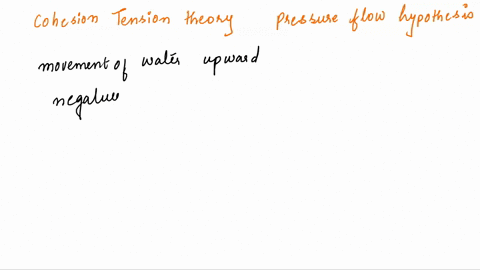 Cohesion Tension theory pressure flow hypothesis
movement of water upward
negative